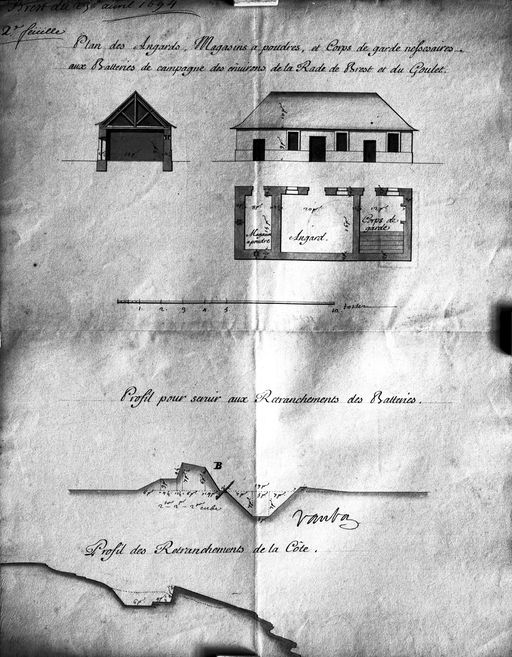 Brest du avril 1694
2e feuille
Plan des Angards, Magasins a poudres, et Corps de garde nessessaires
aux Batteries de campagne des environs de la Rade de Brest et du Goulet.
Magasin Angard. Corps de
a poudre garde
1 2 3 4 5 10 toises
Profil pour servir aux Retranchements des Batteries.
B
vauban
Profil des Retranchements de la Côte.